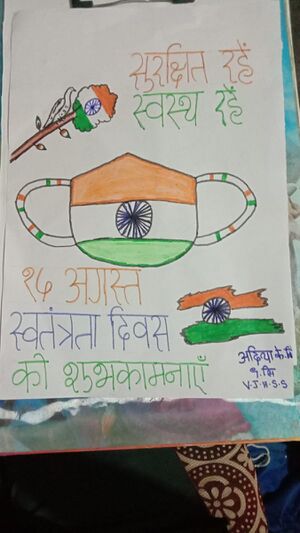 सुरक्षित रहें
स्वस्थ रहें
१५ अगस्त
स्वतंत्रता दिवस
की शुभकामनाएँ
V.J.H.S.S